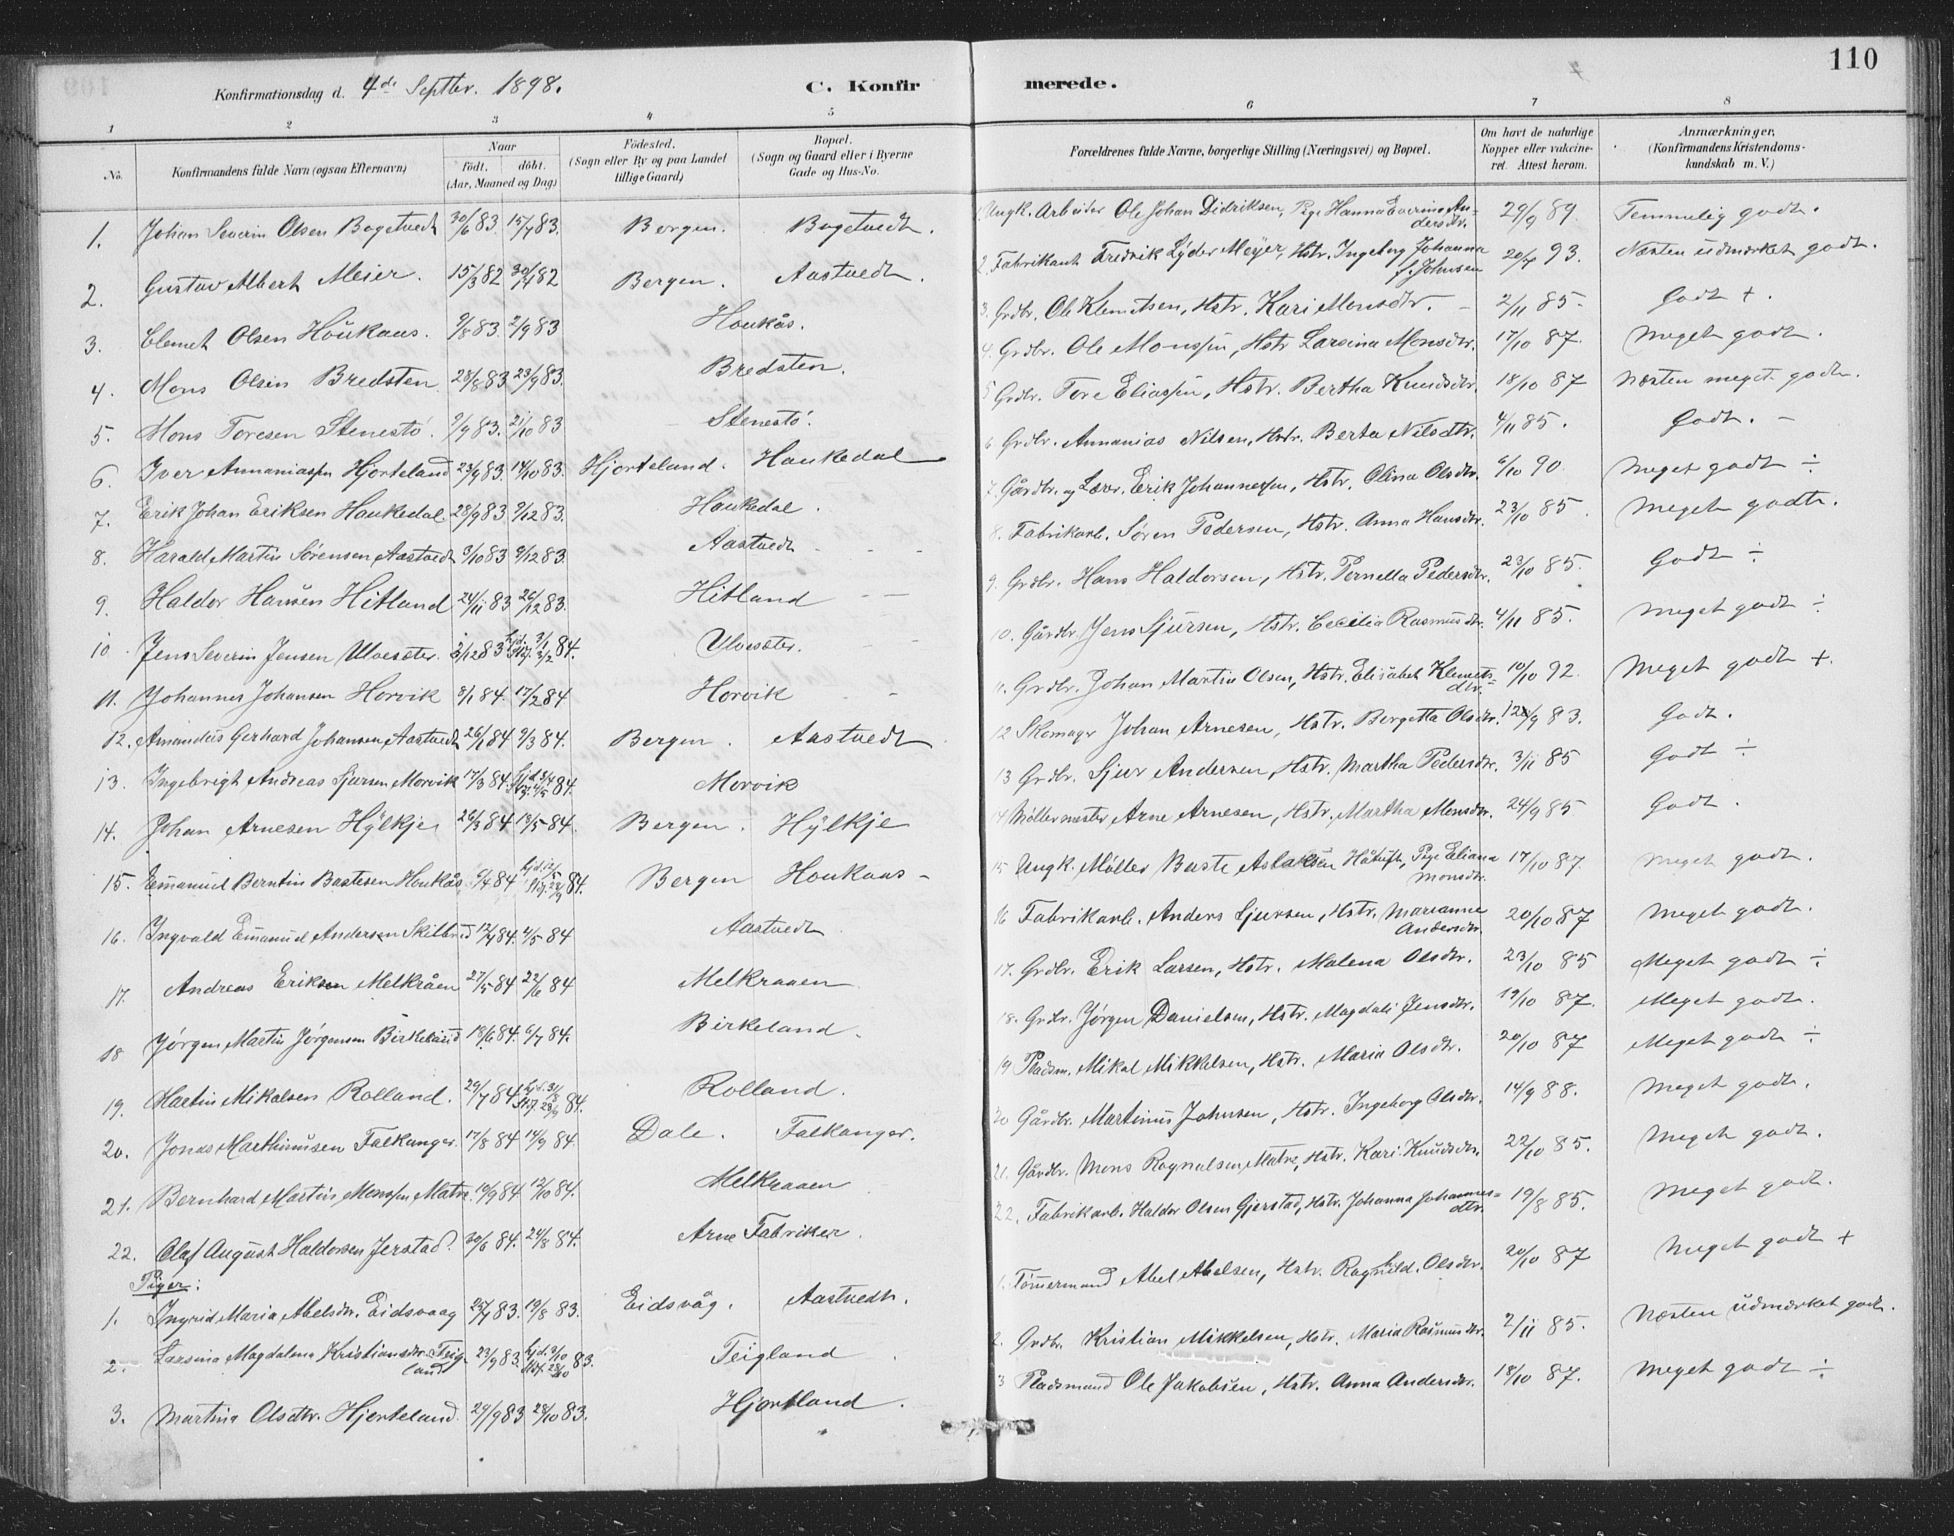 110
Konfirmationsdag d. 4de Septbr. 1898.
C. Konfirmerede.
1 2 3 4 5 6 7 8
No.
Konfirmandens fulde Navn (ogsaa Efternavn)
Naar
födt. döbt.
(Aar, Maaned og Dag)
Födested.
(Sogn eller By og paa Landet
tillige Gaard)
Bopæl.
(Sogn og Gaard eller i Byerne
Gade og Hus-No.
Forældrenes fulde Navne, borgerlige Stilling (Næringsvei) og Bopæl.
Om havt de naturlige
Kopper eller vakcine-
ret. Attest herom.
Anmærkninger,
(Konfirmandens Kristendoms-
kundskab m. V.)
1. Johan Severin Olsen Bogetvedt 30/6 83. 15/7 83. Bergen. Bogetvedt. Ungk. Arbeider Ole Johan Didriksen, Pige Hanna Everine Andersdtr. 29/9 89. Temmelig godt.
2. Gustav Albert Meier. 15/3 82 30/4 82 Bergen. Aastvedt. 2. Fabrikant Fredrik Lyder Meyer, Hstr. Ingeborg Johanna f. Johnsen 20/4 93. Næsten udmærket godt.
3. Clemet Olsen Houkaas. 9/8 83. 2/9 83 Houkås. 3. Grdbr. Ole Klemetsen, Hstr. Kari Monsdtr. 2/11 85. Godt +.
4. Mons Olsen Bredsten 28/8 83 23/9 83. Bredsten. 4. Grdbr. Ole Monssen, Hstr Larsina Monsdtr. 17/10 87. Meget godt.
5. Mons Toresen Stenestö. 9/9 83. 21/10 83 Stenestö. 5 Grdbr. Tore Eliassen, Hstr. Bertha Knudsdtr. 18/10 87 Næsten meget godt.
6. Iver Annaniassen Hjorteland 23/9 83. 14/10 83. Hjorteland. Haukedal 6 Grdbr. Annanias Nilsen, Hstr. Berta Nilsdtr. 4/11 85. Godt. -
7. Erik Johan Eriksen Haukedal 28/9 83 9/12 83. Haukedal. 7. Gårdbr. og Lærer. Erik Johannessen, Hstr. Olina Olsdtr. 6/10 90. Meget godt ÷
8. Harald Martin Sörensen Aastvedt 3/10 83 9/12 83. Aastvedt 8. Fabrikarb. Sören Pedersen, Hstr. Anna Hansdtr. 23/10 85. Meget godt.
9. Haldor Hansen Hitland 24/11 83 26/12 83. Hitland 9. Grdbr. Hans Haldorsen, Hstr. Pernella Pedersdtr. 23/10 85. Godt ÷
10. Jens Severin Jensen Ulvesæter. 2/12 83 hjd. 3/1 Stf. 3/2 84. Ulvesæter. 10. Gårdbr. Jens Sjursen, Hstr. Cecilia Rasmusdtr. 4/11 85. Meget godt ÷
11. Johannes Johansen Horvik 8/1 84. 17/2 84 Horvik 11. Grdbr. Johan Martin Olsen, Hstr. Elisabet Klemetsdtr. 10/10 92. Meget godt +.
12. Amandus Gerhard Johansen Aastvedt 26/1 84 9/3 84. Bergen. Aastvedt 12 Skomager Johan Arnesen, Hstr. Bergetta Olsdtr. /9 83. Godt.
13. Ingebrigt Andreas Sjursen Morvik 17/3 84. 84. Morvik 13 Grdbr. Sjur Andersen, Hstr. Martha Pedersdtr. 3/11 85 Godt ÷
14. Johan Arnesen Hylkje 26/3 84 13/5 84. Bergen. Hylkje 14 Möllermester Arne Arnesen, Hstr. Martha Monsdtr. 24/9 85 Godt.
15. Emanuel Berntin Bastesen Houkås. 84 84. Bergen Houkaas- 15 Ungk. Möller Baste Aslaksen, Pige Eliana Monsdtr. 17/10 87. Meget godt.
16. Ingvald Emanuel Andersen Skilbred 12/4 84. 4/5 84 Aastvedt 16 Fabrikarb. Anders Sjursen, Hstr. Marianne Andersdtr. 20/10 87 Meget godt.
17. Andreas Eriksen Melkråen 27/5 84 22/6 84 Melkraaen 17. Grdbr. Erik Larsen, Hstr. Malena Olsdtr. 23/10 85 Meget godt ÷
18 Jörgen Martin Jörgensen Birkeland 18/6 84. 6/7 84. Birkeland. 18. Grdbr. Jörgen Danielsen, Hstr. Magdali Jensdtr. 19/10 87. Meget godt.
19. Martin Mikalsen Rolland. 29/7 84 hjd. 31/8 Stf. 28/9 84. Rolland. 19 Pladsm. Mikal Mikkelsen, Hstr. Maria Olsdtr. 20/10 87 Meget godt ÷
20. Jonas Marthinusen Falkanger. 17/8 84 14/9 84. Dale. Falkanger. 20 Gårdbr. Martinus Johnsen, Hstr. Ingeborg Olsdtr. 14/9 88. Meget godt.
21. Bernhard Martin Monssen Matre. 10/9 84 12/10 84. Melkraaen 21. Gårdbr. Mons Ragnalsen Matre, Hstr. Kari Knudsdtr. 22/10 85. Meget godt.
22. Olaf August Haldorsen Jerstad. 30/6 84. 24/8 84. Arne Fabriker. 22. Fabrikarb. Haldor Olsen Gjerstad, Hstr. Johanna Johannesdtr. 19/8 85. Meget godt.
Piger:
1. Ingrid Maria Abelsdtr. Eidsvaag 83. 19/8 83. Eidsvåg. Aastvedt. 1. Tömmermand Abel Abelsen, Hstr. Ragnhild. Olsdtr. 20/10 87 Meget godt +
2. Larsina Magdalena Kristiansdtr. Teigland 23/9 83. 83. Teigland 2. Grdbr. Kristian Mikkelsen, Hstr. Maria Rasmusdtr. 2/11 85. Næsten udmærket godt.
3. Martina Olsdtr. Hjorteland. 29/9 83 28/10 83. Hjortland. 3 Pladsmand Ole Jakobsen, Hstr. Anna Andersdtr. 18/10 87. Meget godt ÷